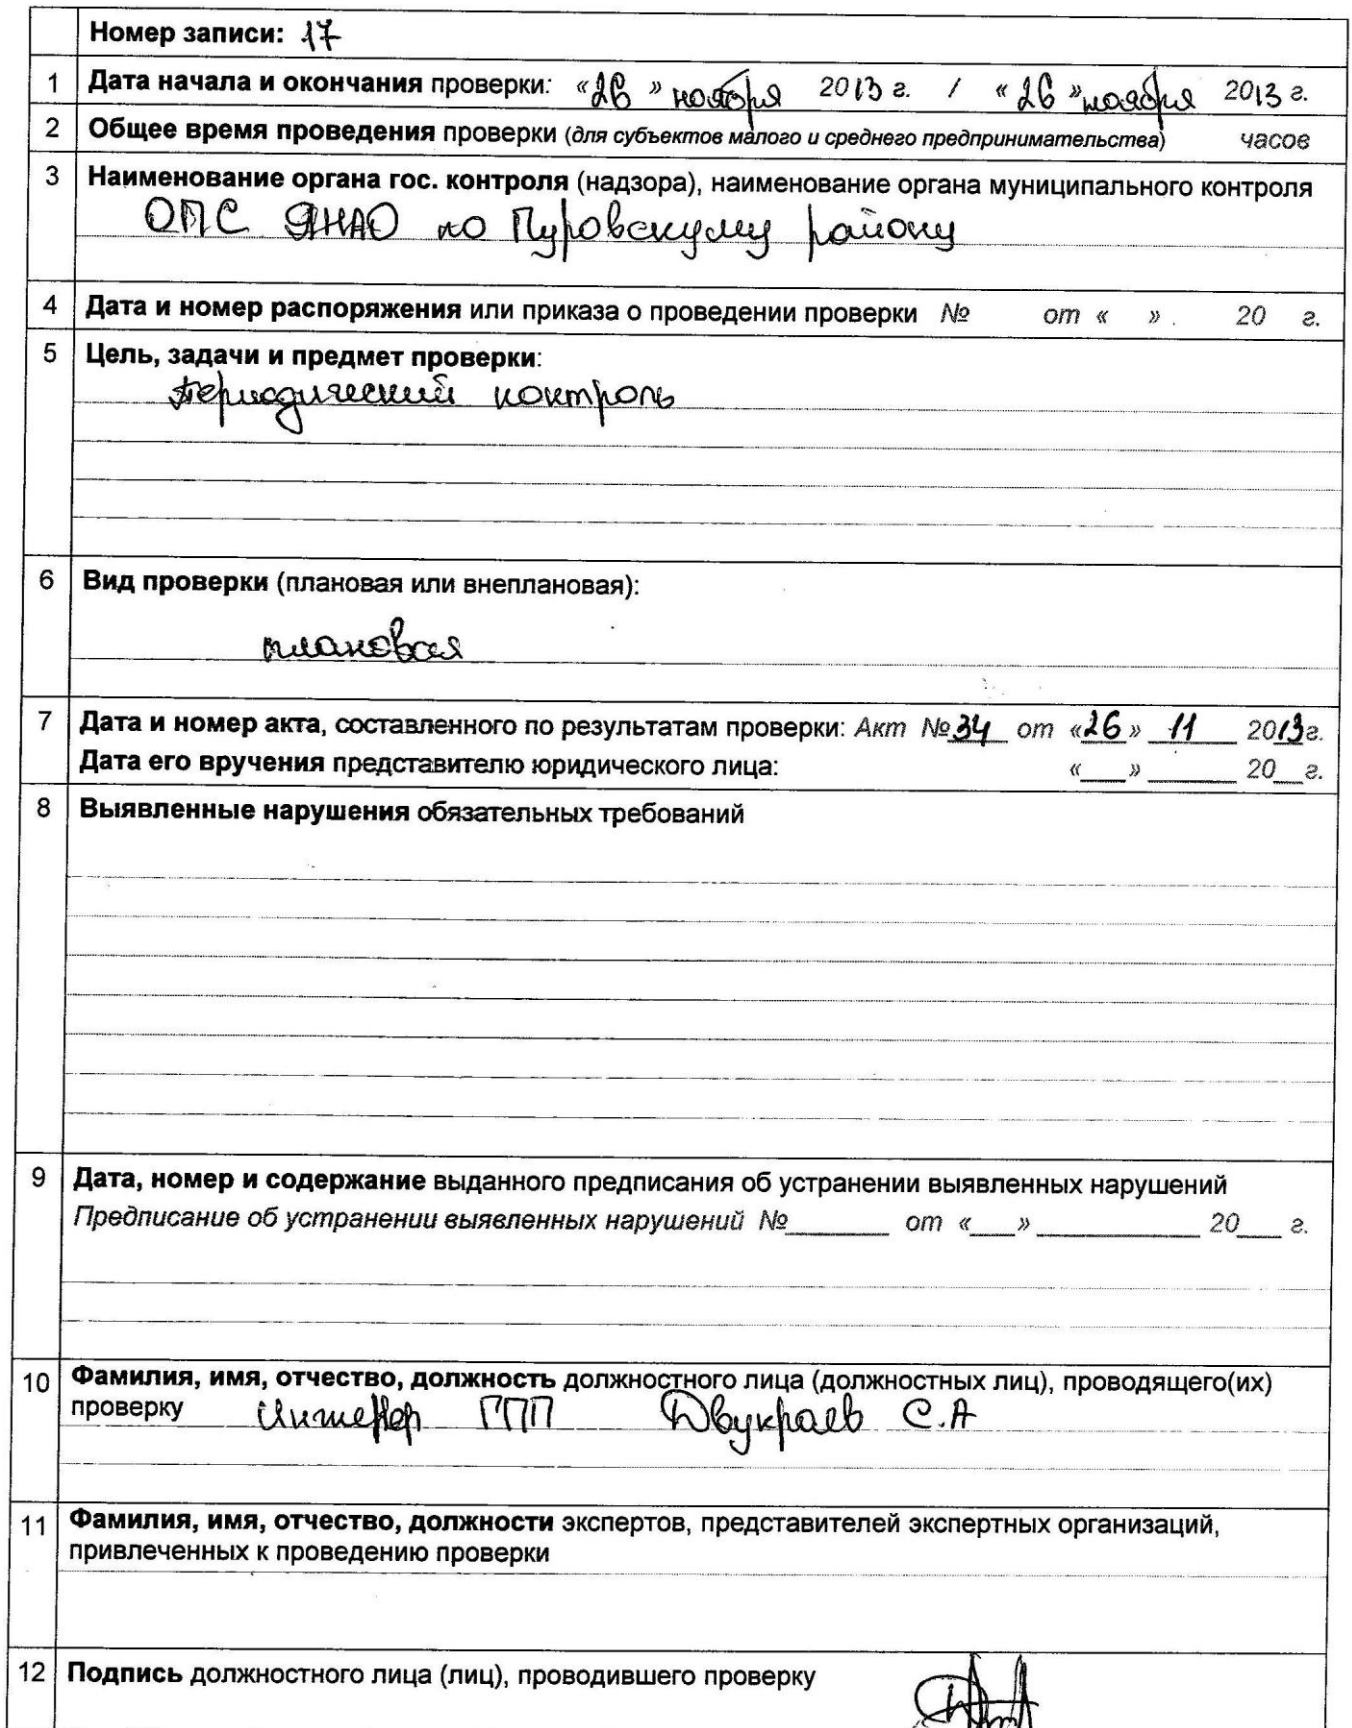 Номер записи: 17
1 Дата начала и окончания проверки: «26» ноября 2013 г. / «26» ноября 2013 г.
2 Общее время проведения проверки (для субъектов малого и среднего предпринимательства) часов
3 Наименование органа гос. контроля (надзора), наименование органа муниципального контроля
ОПС ЯНАО по Пуровскуму району
4 Дата и номер распоряжения или приказа о проведении проверки № от « » . 20 г.
5 Цель, задачи и предмет проверки:
периодический контроль
6 Вид проверки (плановая или внеплановая):
плановая
7 Дата и номер акта, составленного по результатам проверки: Акт № 34 от «26» 11 2013г.
Дата его вручения представителю юридического лица: «___» ______ 20__г.
8 Выявленные нарушения обязательных требований
9 Дата, номер и содержание выданного предписания об устранении выявленных нарушений
Предписание об устранении выявленных нарушений №_______ от «___» ___________ 20___ г.
10 Фамилия, имя, отчество, должность должностного лица (должностных лиц), проводящего(их)
проверку ГПП Двукраев С.А
11 Фамилия, имя, отчество, должности экспертов, представителей экспертных организаций,
привлеченных к проведению проверки
12 Подпись должностного лица (лиц), проводившего проверку